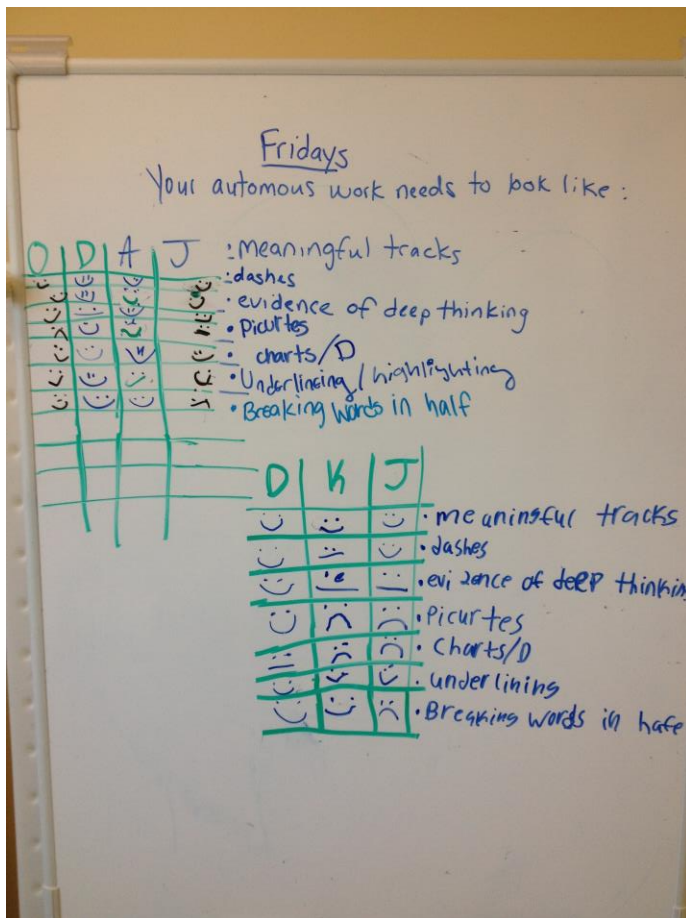 Fridays
Your automous work needs to look like :
O D A J
: meaningful tracks
• dashes
• evidence of deep thinking
• Picurtes
• charts/D
• Underlineing / highlighting
• Breaking words in half
D K J
• meaninsful tracks
• dashes
• evidence of deep thinking
• Picurtes
• Charts/D
• underlining
• Breaking words in hafe